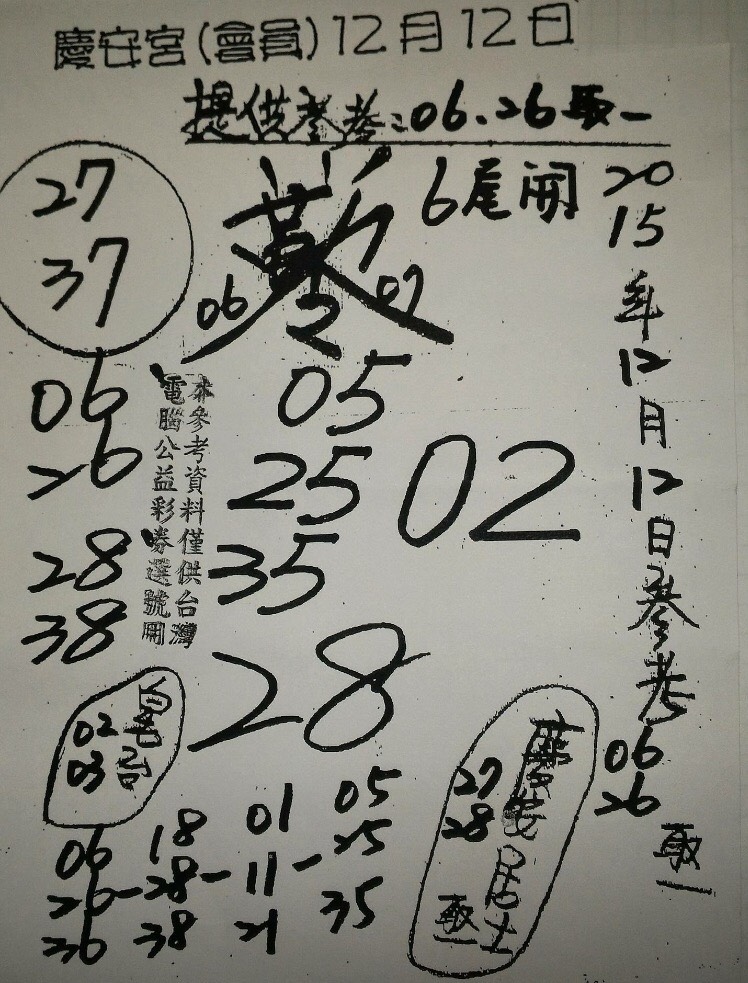 慶安宮(會員)12月12日
提供參考:06.26取一
27
37
6尾開
06
2
07
2015年12月12日參考
06
26
取一
06
26
28
38
本參考資料僅供台灣
電腦公益彩券選號用
05
25
35
02
28
02
03
慶安居士
27
28
取一
06 18 01 05
26-28-11-25
36 38 21 35